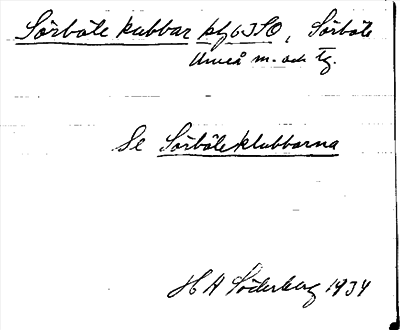 Sörböle klubbar kfl 6 J SO, Sörböle
Umeå m- och tg.
Se Sörböleklubbarna
H A Söderberg 1934